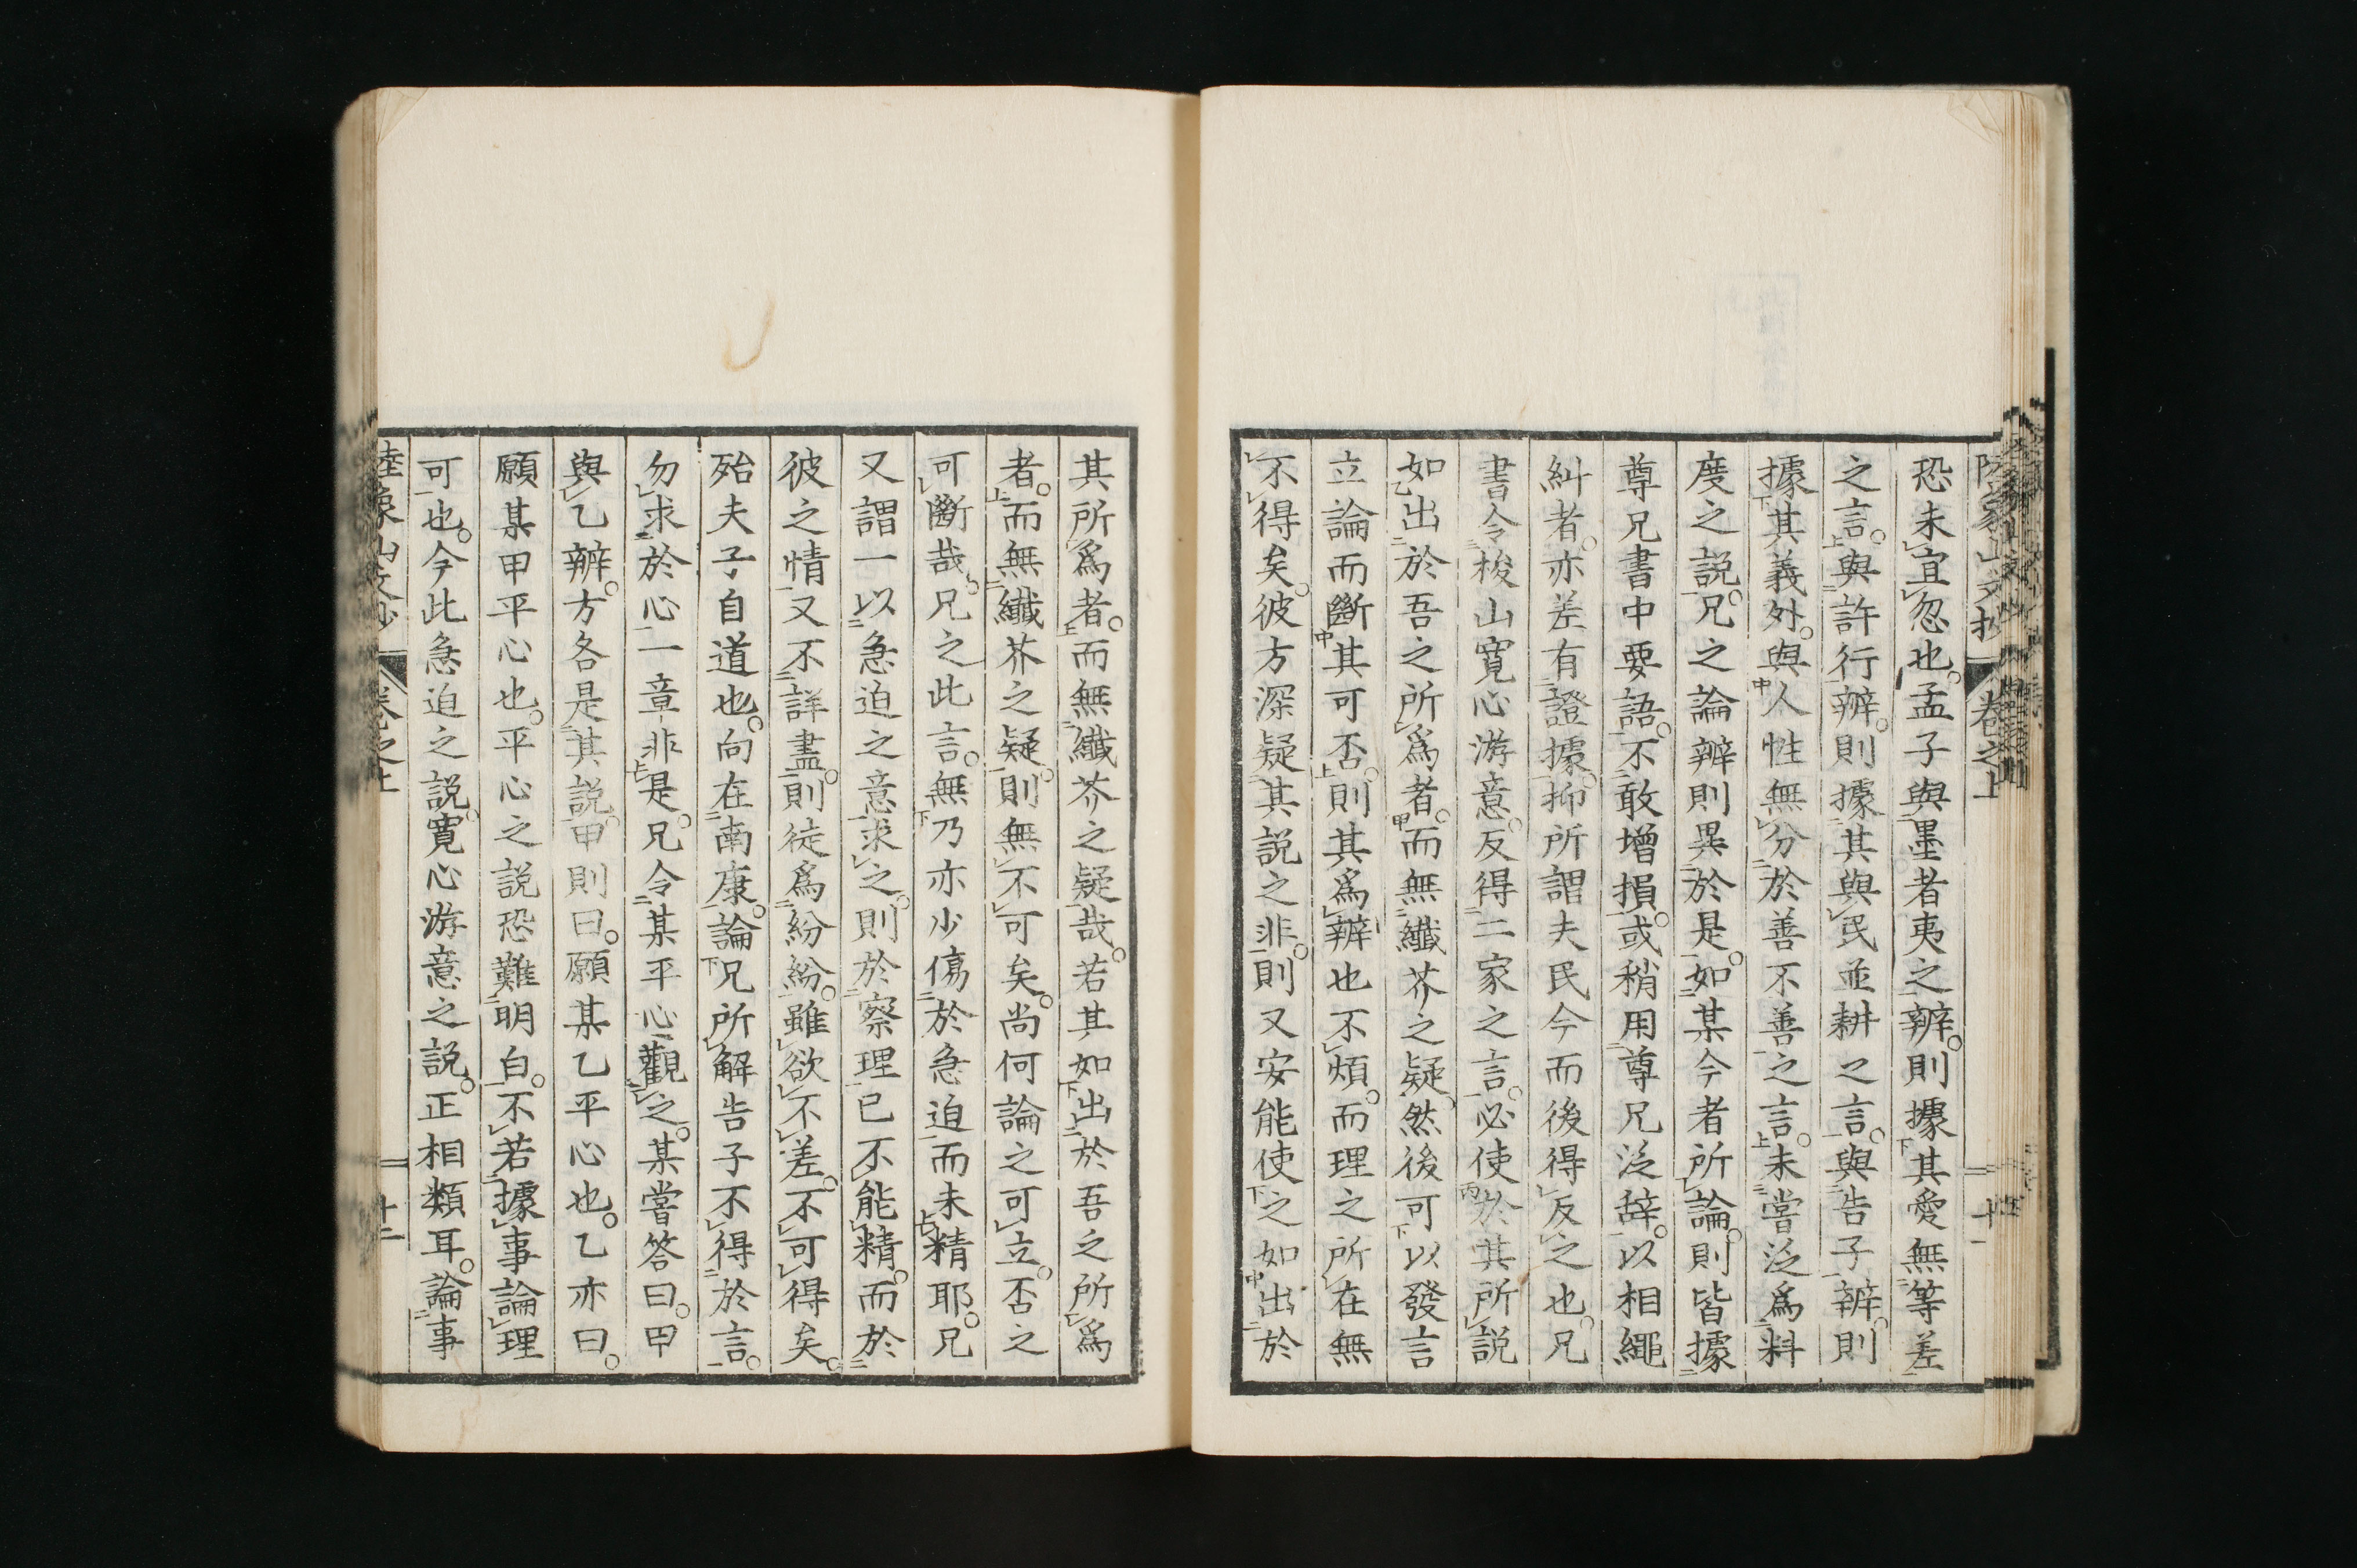 恐未宜忽也。孟子與墨者夷之辨。則據其愛無等差
之言。與許行辨。則據其與民並耕之言。與告子辨。則
據其義外。與人性無分於善不善之言。未嘗泛爲料
度之説。兄之論辨則異於是。如某今者所論。則皆據
尊兄書中要語。不敢增損。或稍用尊兄泛辭。以相繩
糾者。亦差有證據。抑所謂夫民今而後得反之也。兄
書令梭山寛心游意。反得二家之言。必使於其所説
如出於吾之所爲者。而無纖芥之疑。然後可以發言
立論而斷其可否。則其爲辨也不煩。而理之所在無
不得矣。彼方深疑其説之非。則又安能使之如出於
其所爲者。而無纖芥之疑哉。若其如出於吾之所爲
者。而無纖芥之疑。則無不可矣。尚何論之可立。否之
可斷哉。兄之此言。無乃亦少傷於急迫而未精耶。兄
又謂一以急迫之意求之。則於察理已不能精。而於
彼之情又不詳盡。則徒爲紛紛。雖欲不差。不可得矣。
殆夫子自道也。向在南康。論兄所解告子不得於言。
勿求於心一章非是。兄令某平心觀之。某嘗答曰。甲
與乙辨。方各是其説。甲則曰。願某乙平心也。乙亦曰。
願某甲平心也。平心之説恐難明白。不若據事論理
可也。今此急迫之説。寛心游意之説。正相類耳。論事
陸象山文抄 卷之上 十二